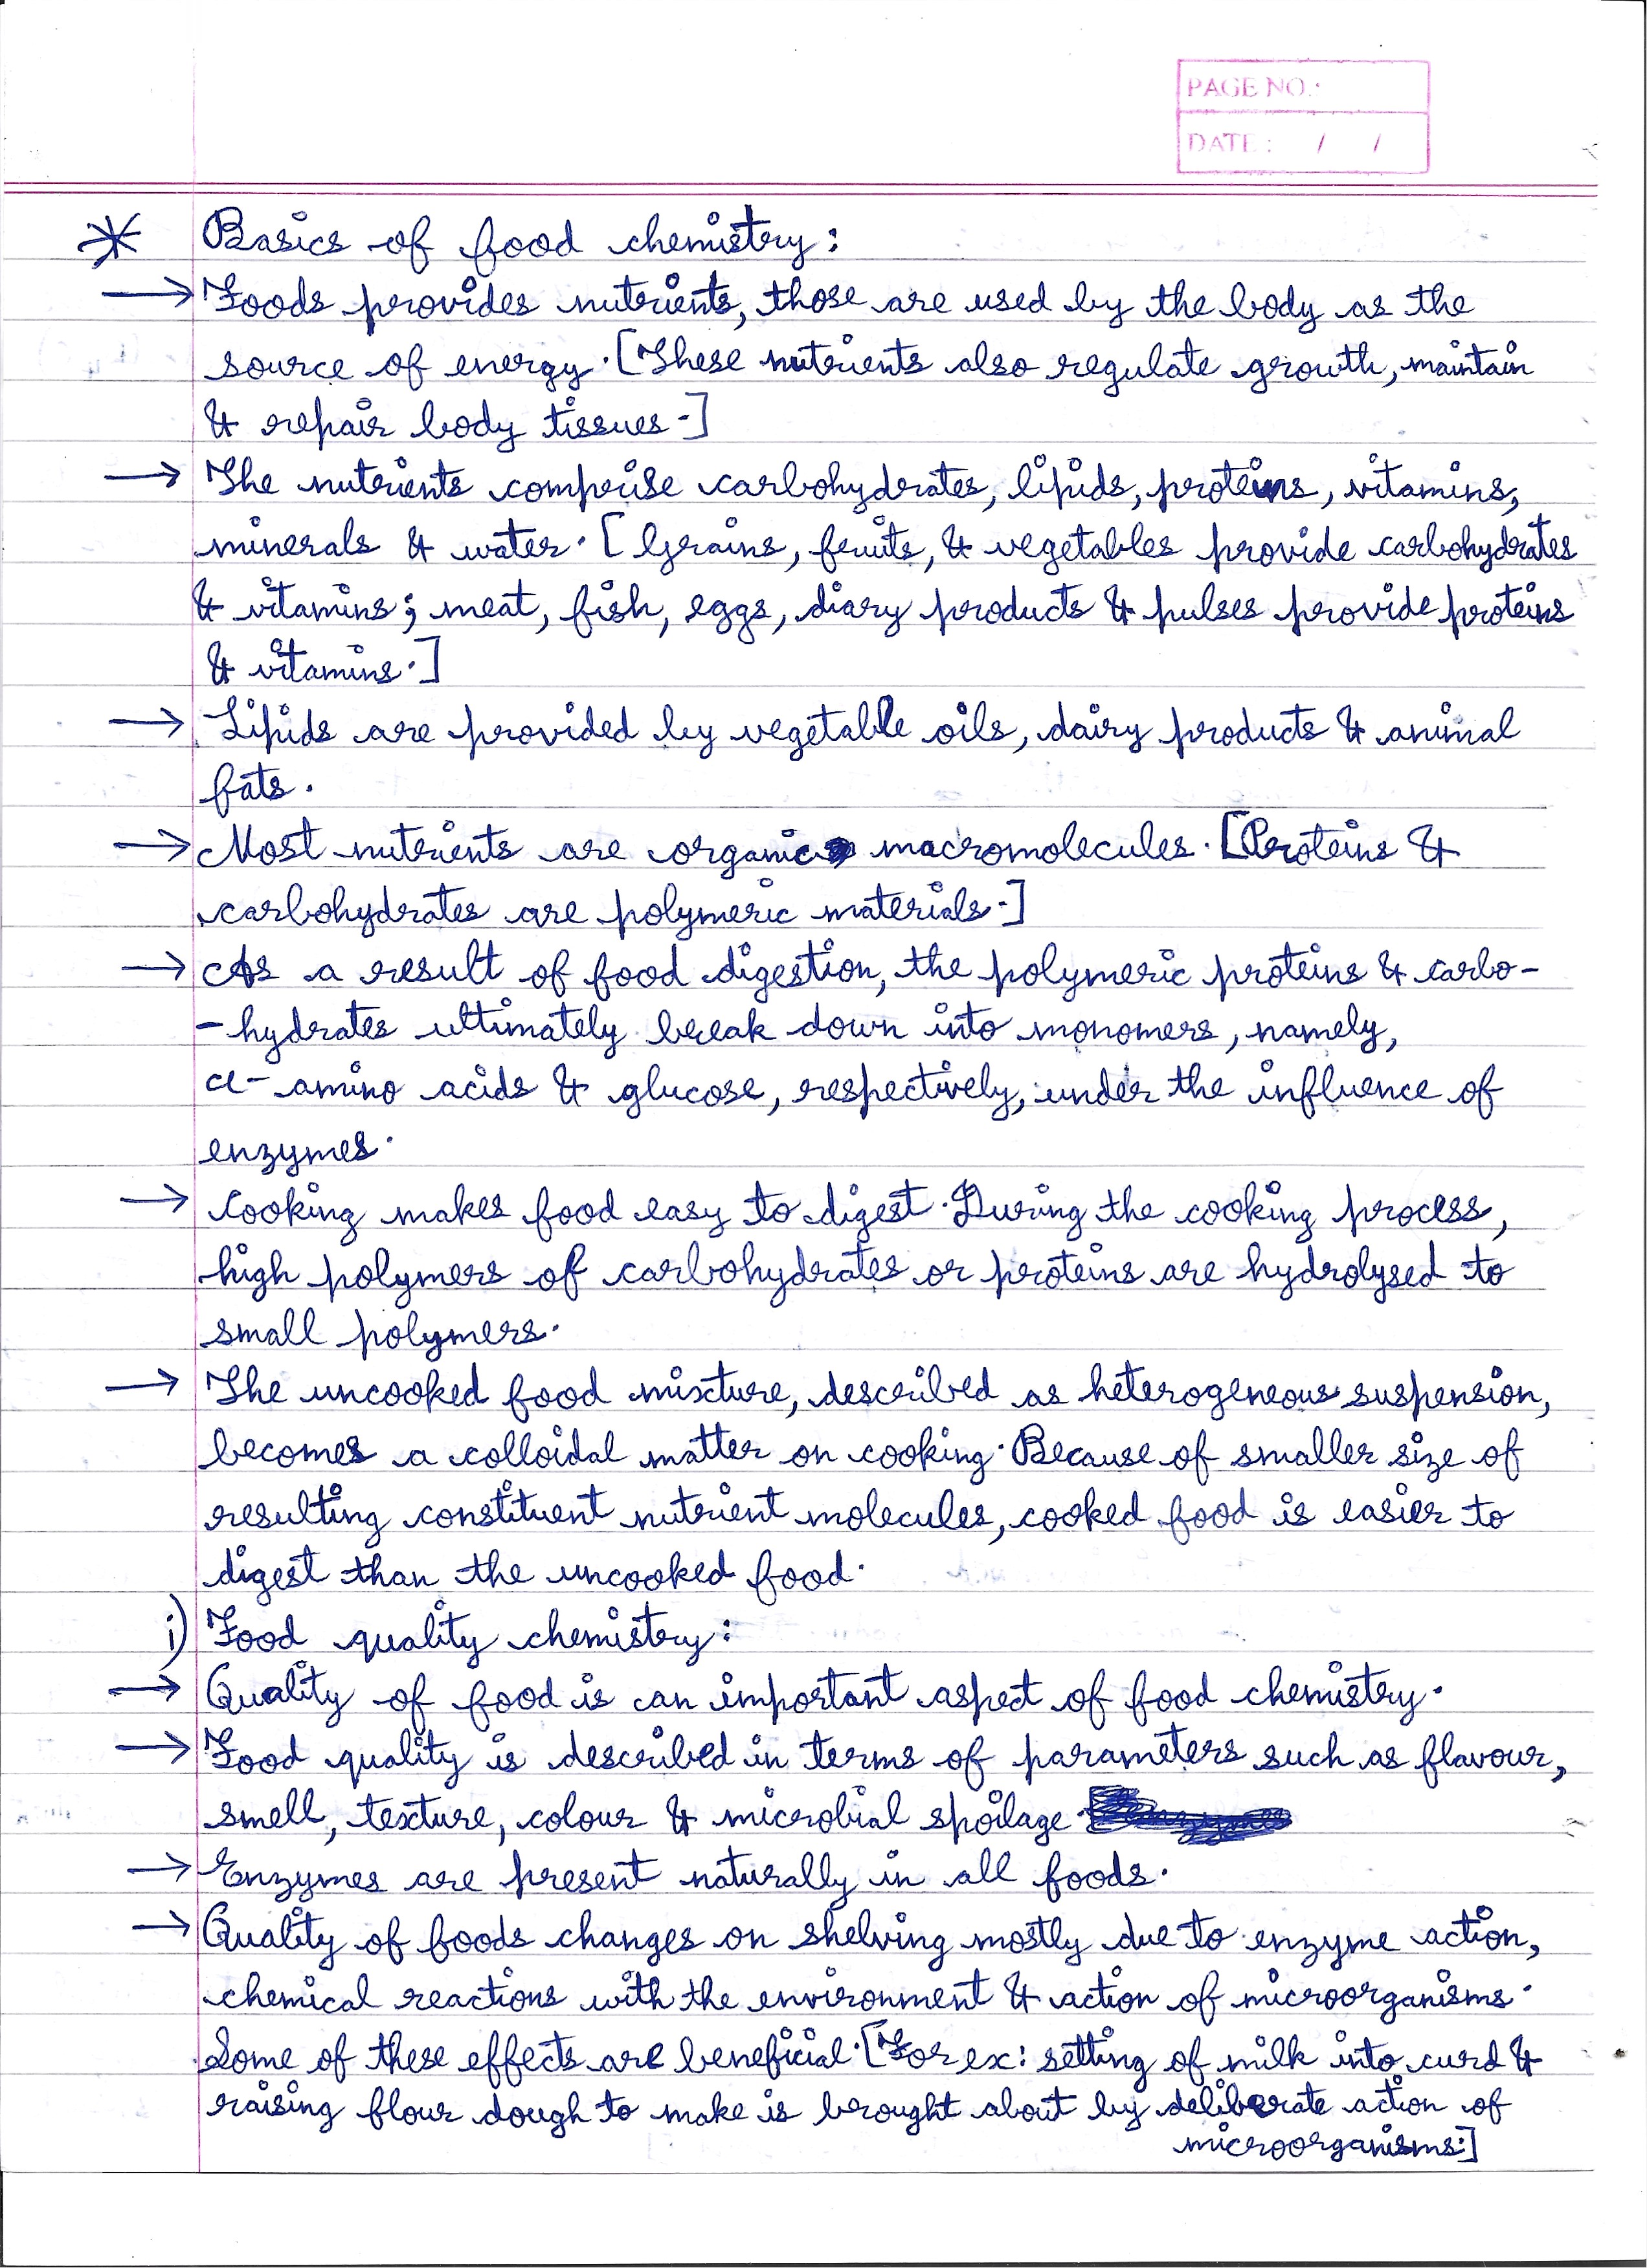 PAGE NO.:
DATE : / /
* Basics of food chemistry:
→ Foods provides nutrients, those are used by the body as the
source of energy. [These nutrients also regulate growth, maintain
& repair body tissues.]
→ The nutrients comprise carbohydrates, lipids, proteins, vitamins,
minerals & water. [Grains, fruits, & vegetables provide carbohydrates
& vitamins; meat, fish, eggs, diary products & pulses provide proteins
& vitamins.]
→ Lipids are provided by vegetable oils, dairy products & animal
fats.
→ Most nutrients are organic macromolecules. [Proteins &
carbohydrates are polymeric materials.]
→ As a result of food digestion, the polymeric proteins & carbo-
-hydrates ultimately break down into monomers, namely,
α- amino acids & glucose, respectively, under the influence of
enzymes.
→ Cooking makes food easy to digest. During the cooking process,
high polymers of carbohydrates or proteins are hydrolysed to
small polymers.
→ The uncooked food mixture, described as heterogeneous suspension,
becomes a colloidal matter on cooking. Because of smaller size of
resulting constituent nutrient molecules, cooked food is easier to
digest than the uncooked food.
i) Food quality chemistry:
→ Quality of food is can important aspect of food chemistry.
→ Food quality is described in terms of parameters such as flavour,
smell, texture, colour & microbial spoilage.
→ Enzymes are present naturally in all foods.
→ Quality of foods changes on shelving mostly due to enzyme action,
chemical reactions with the environment & action of microorganisms.
Some of these effects are beneficial. [For ex: setting of milk into curd &
raising flour dough to make is brought about by deliberate action of
microorganisms.]